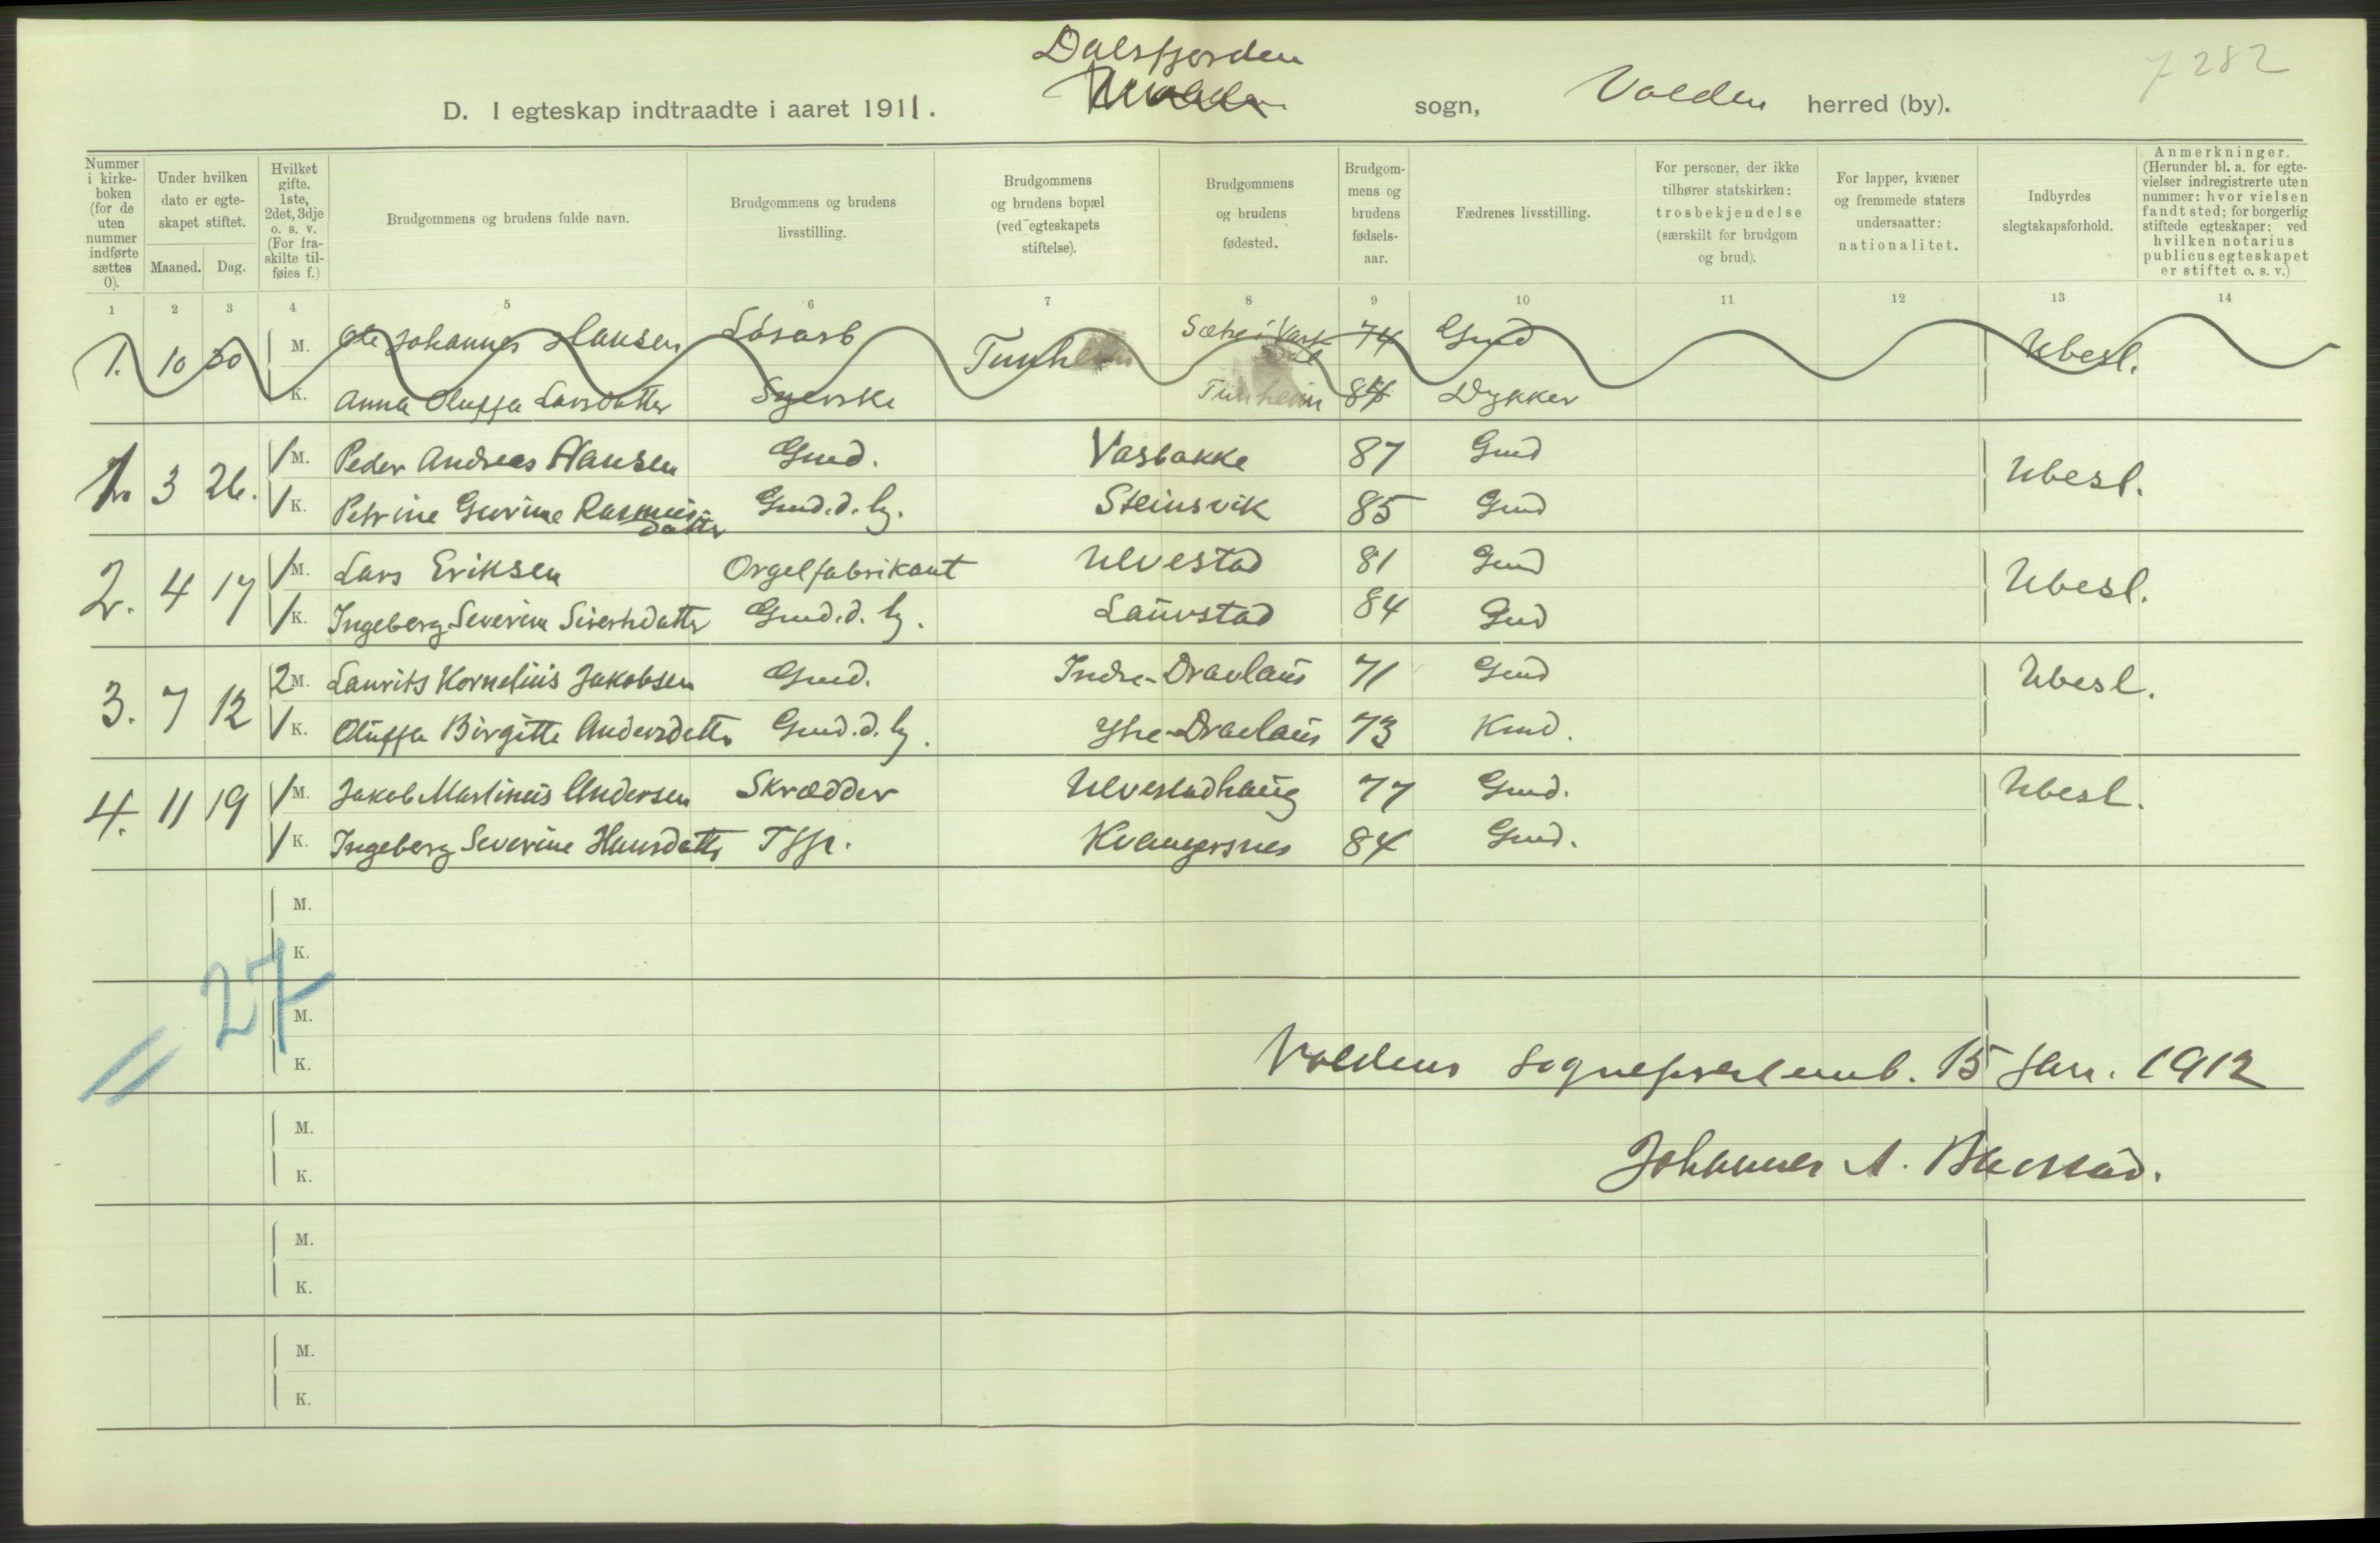 7 282
Dalsfjorden
D. I egteskap indtraadte i aaret 1911. sogn, Volden herred (by).
Nummer i kirke-boken (for de uten nummer indførte sættes 0).
Under hvilken dato er egte-skapet stiftet.
Maaned. Dag.
Hvilket gifte. 1ste, 2det, 3dje o. s. v. (For fra-skilte til-føies f.)
Brudgommens og brudens fulde navn.
Brudgommens og brudens livsstilling.
Brudgommens og brudens bopæl (ved egteskapets stiftelse).
Brudgommens og brudens fødested.
Brudgom-mens og brudens fødsels-aar.
Fædrenes livsstilling.
For personer, der ikke tilhører statskirken: trosbekjendelse (særskilt for brudgom og brud).
For lapper, kvæner og fremmede staters undersaatter: nationalitet.
Indbyrdes slegtskapsforhold.
Anmerkninger. (Herunder bl. a. for egte-vielser indregistrerte uten nummer: hvor vielsen fandt sted; for borgerlig stiftede egteskaper: ved hvilken notarius publicus egteskapet er stiftet o. s. v.)
1 2 3 4 5 6 7 8 9 10 11 12 13 14
1. 10 30 M. Ole Johannes Hansen Løsarb Tunheim Sætre i 74 Gmd Ubesl.
K. Anna Oluffa Larsdatter Syerske Tunheim 84 Dykker
1. 3 26. 1 M. Peder Andreas Hansen Gmd. Vasbakke 87 Gmd Ubesl.
1 K. Petrine Gurine Rasmusdatter Gmd. d. hj. Steinsvik 85 Gmd
2. 4 17 1 M. Lars Eriksen Orgelfabrikant Ulvestad 81 Gmd Ubesl.
1 K. Ingeborg Severine Sivertsdatter Gmd. d. hj. Lauvstad 84 Gmd
3. 7 12 2 M. Laurits Kornelius Jakobsen Gmd. Indre-Dravlaus 71 Gmd Ubesl.
1 K. Oluffa Birgitte Andersdatter Gmd. d. hj. Ytre-Dravlaus 73 Kmd.
4. 11 19 1 M. Jakob Martinus Andersen Skrædder Ulvestadhaug 77 Gmd. Ubesl.
1 K. Ingeborg Severine Hansdatter Tjp. Kvangersnes 84 Gmd.
M.
K.
27
M.
K.
Voldens sogneprestemb. 15 Jan. 1912
M.
K.
Johannes A. Barstad.
M.
K.
M.
K.